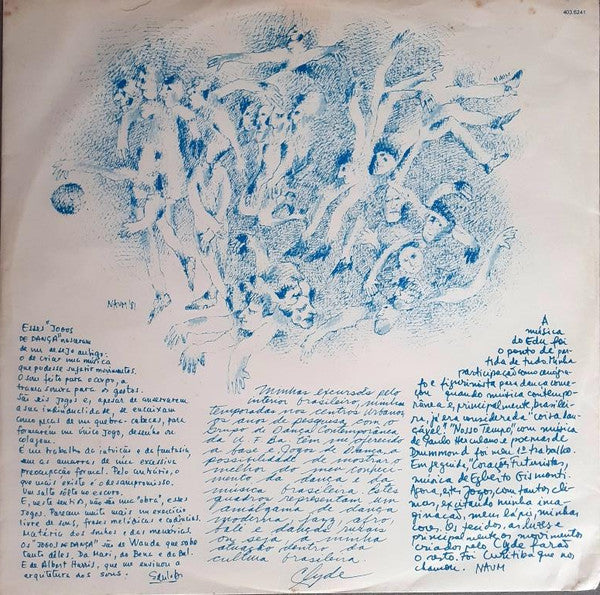 403.6241
NAUM
NAUM '81
Esses "JOGOS
DE DANÇA" nasceram
de um desejo antigo:
o de criar uma música
que pudesse sugerir movimentos.
O som feito para o corpo, a
trama sonora para os gestos.
São seis Jogos e, apesar de conservarem
a sua individualidade, se encaixam
como peças de um quebra-cabeças, para
formarem um único Jogo, desenho ou
colagem.
É um trabalho de intuição e de fantasia,
sem as amarras de uma excessiva
preocupação formal. Pelo contrário, o
que mais existe é o descompromisso.
Um salto solto no escuro.
E, neste sentido, não são uma "obra", esses
Jogos. Parecem muito mais um exercício
livre de sons, frases melódicas e cadências.
Matéria dos sonhos e das memórias.
Os "JOGOS DE DANÇA" são de Wanda que cabe
tanto deles. Da Mari, do Bena e do Bel.
E de Albert Harris, que me ensinou a
arquitetura dos sons. Edu Lobo
Minhas excursões pelo
interior brasileiro, minhas
temporadas nos centros urbanos
os anos de pesquisa com o
Grupo de Dança Contemporânea
da U.F.Ba. têm que oferecido
a base e Jogos de Dança a
possibilidade de mostrar o
melhor do meu conhecimento
da dança e da
música brasileira. Estes
quadros representam um
amálgama de dança
moderna, jazz, afro,
ballet e danças rurais
ou seja a minha
atuação dentro da
cultura brasileira.
Clyde
A
música
do Edu foi
o ponto de par-
tida de tudo. Minha
participação como cenógra-
fo e figurinista para dança come-
çou quando música contempo-
rânea e, principalmente, brasilei-
ra, já era musicada "coisa dan-
çável". "Nosso Tempo", com música
de Paulo Herculano e poemas de
Drummond foi meu 1º trabalho.
Em seguida, "Corações Futuristas,
música de Egberto Gismonti.
Agora, estes Jogos, com tantos cli-
mas, excitando minha ima-
ginação, meu lápis, minhas
cores. Os tecidos, as luzes e
principalmente os movimentos
criados pelo Clyde farão
o resto. Foi Curitiba que nos
chamou. NAUM